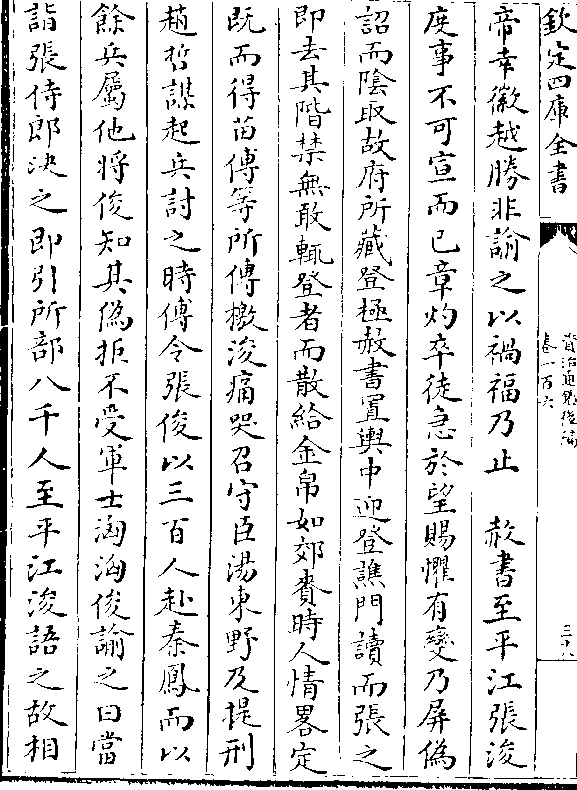 欽定四庫全書
資治通鑑後編
卷一百六
三十八
帝幸徽越勝非諭之以禍福乃止　赦書至平江張浚
度事不可宣而已章灼卒徒急於望賜懼有變乃屏偽
詔而陰取故府所藏登極赦書置輿中迎登譙門讀而張之
即去其階禁無敢輒登者而散給金帛如郊賚時人情畧定
既而得苗傅等所傳檄浚痛哭召守臣湯東野及提刑
趙哲謀起兵討之時傅令張俊以三百人赴秦鳳而以
餘兵屬他將俊知其偽拒不受軍士洶洶俊諭之曰當
詣張侍郎決之即引所部八千人至平江浚語之故相